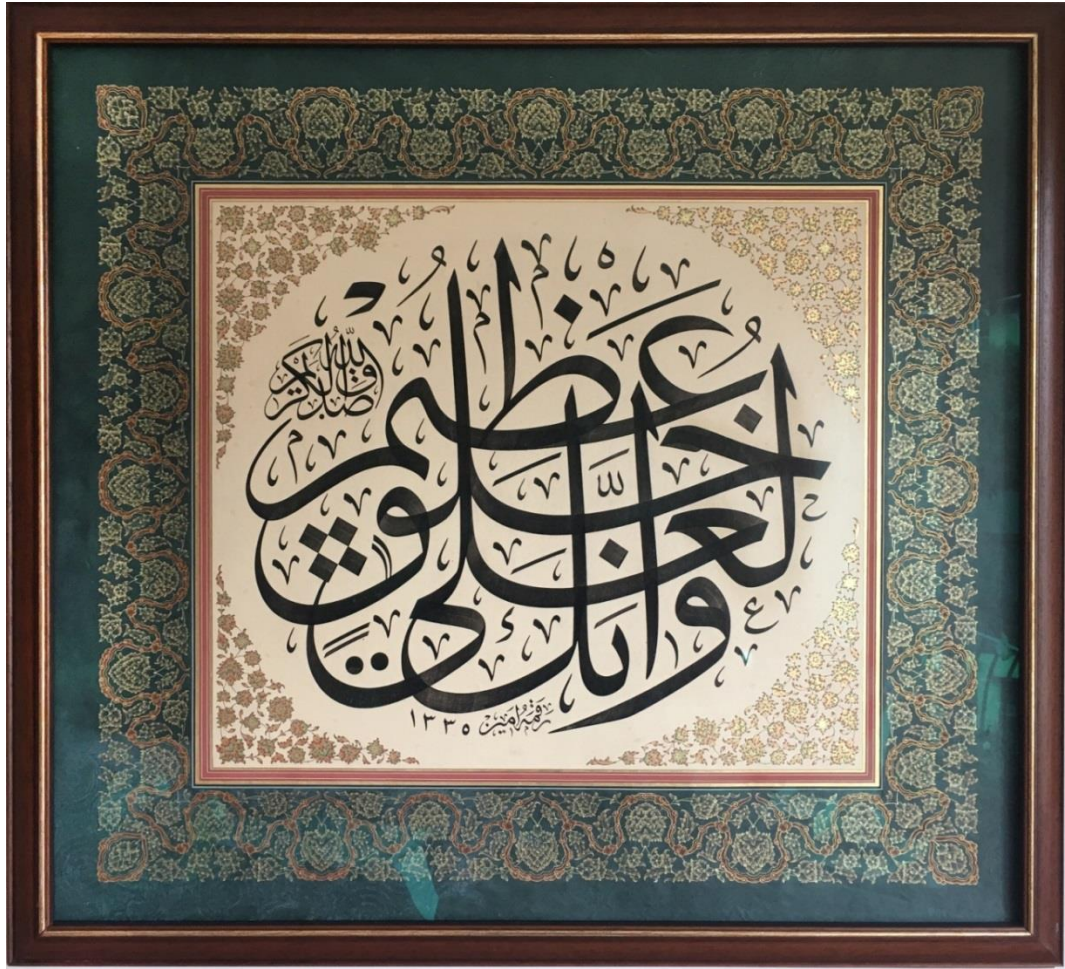 وَإِنَّكَ لَعَلَىٰ خُلُقٍ عَظِيمٍ
صدق الله الكريم
رقمه امين ١٣٣٥